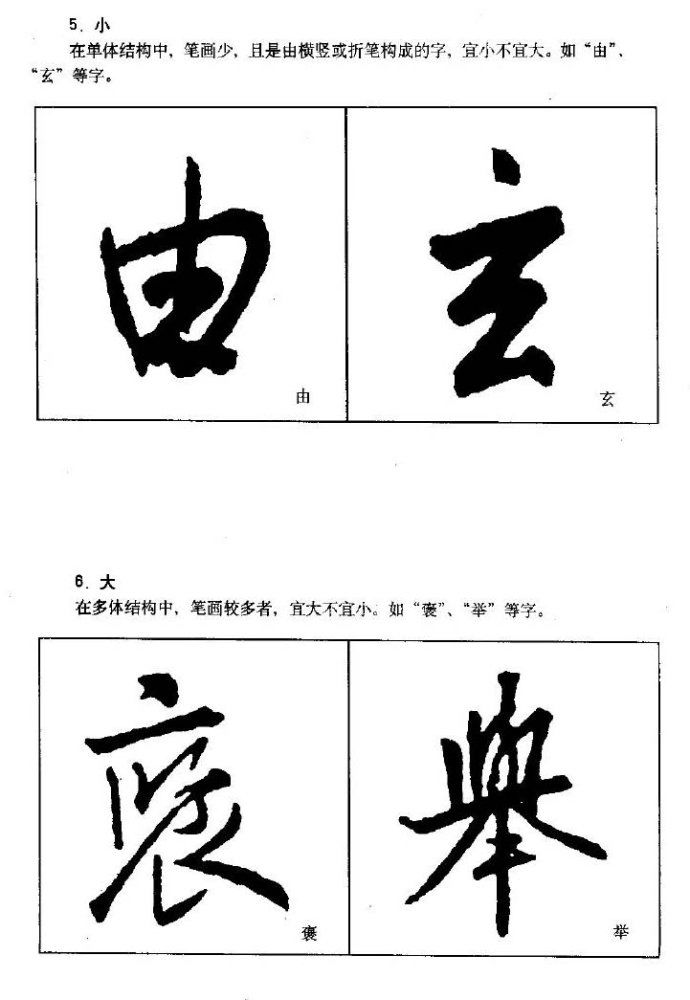 5. 小
在单体结构中，笔画少，且是由横竖或折笔构成的字，宜小不宜大。如“由”、
“玄”等字。
由 玄
由 玄
6. 大
在多体结构中，笔画较多者，宜大不宜小。如“褒”、“举”等字。
褒 舉
褒 举